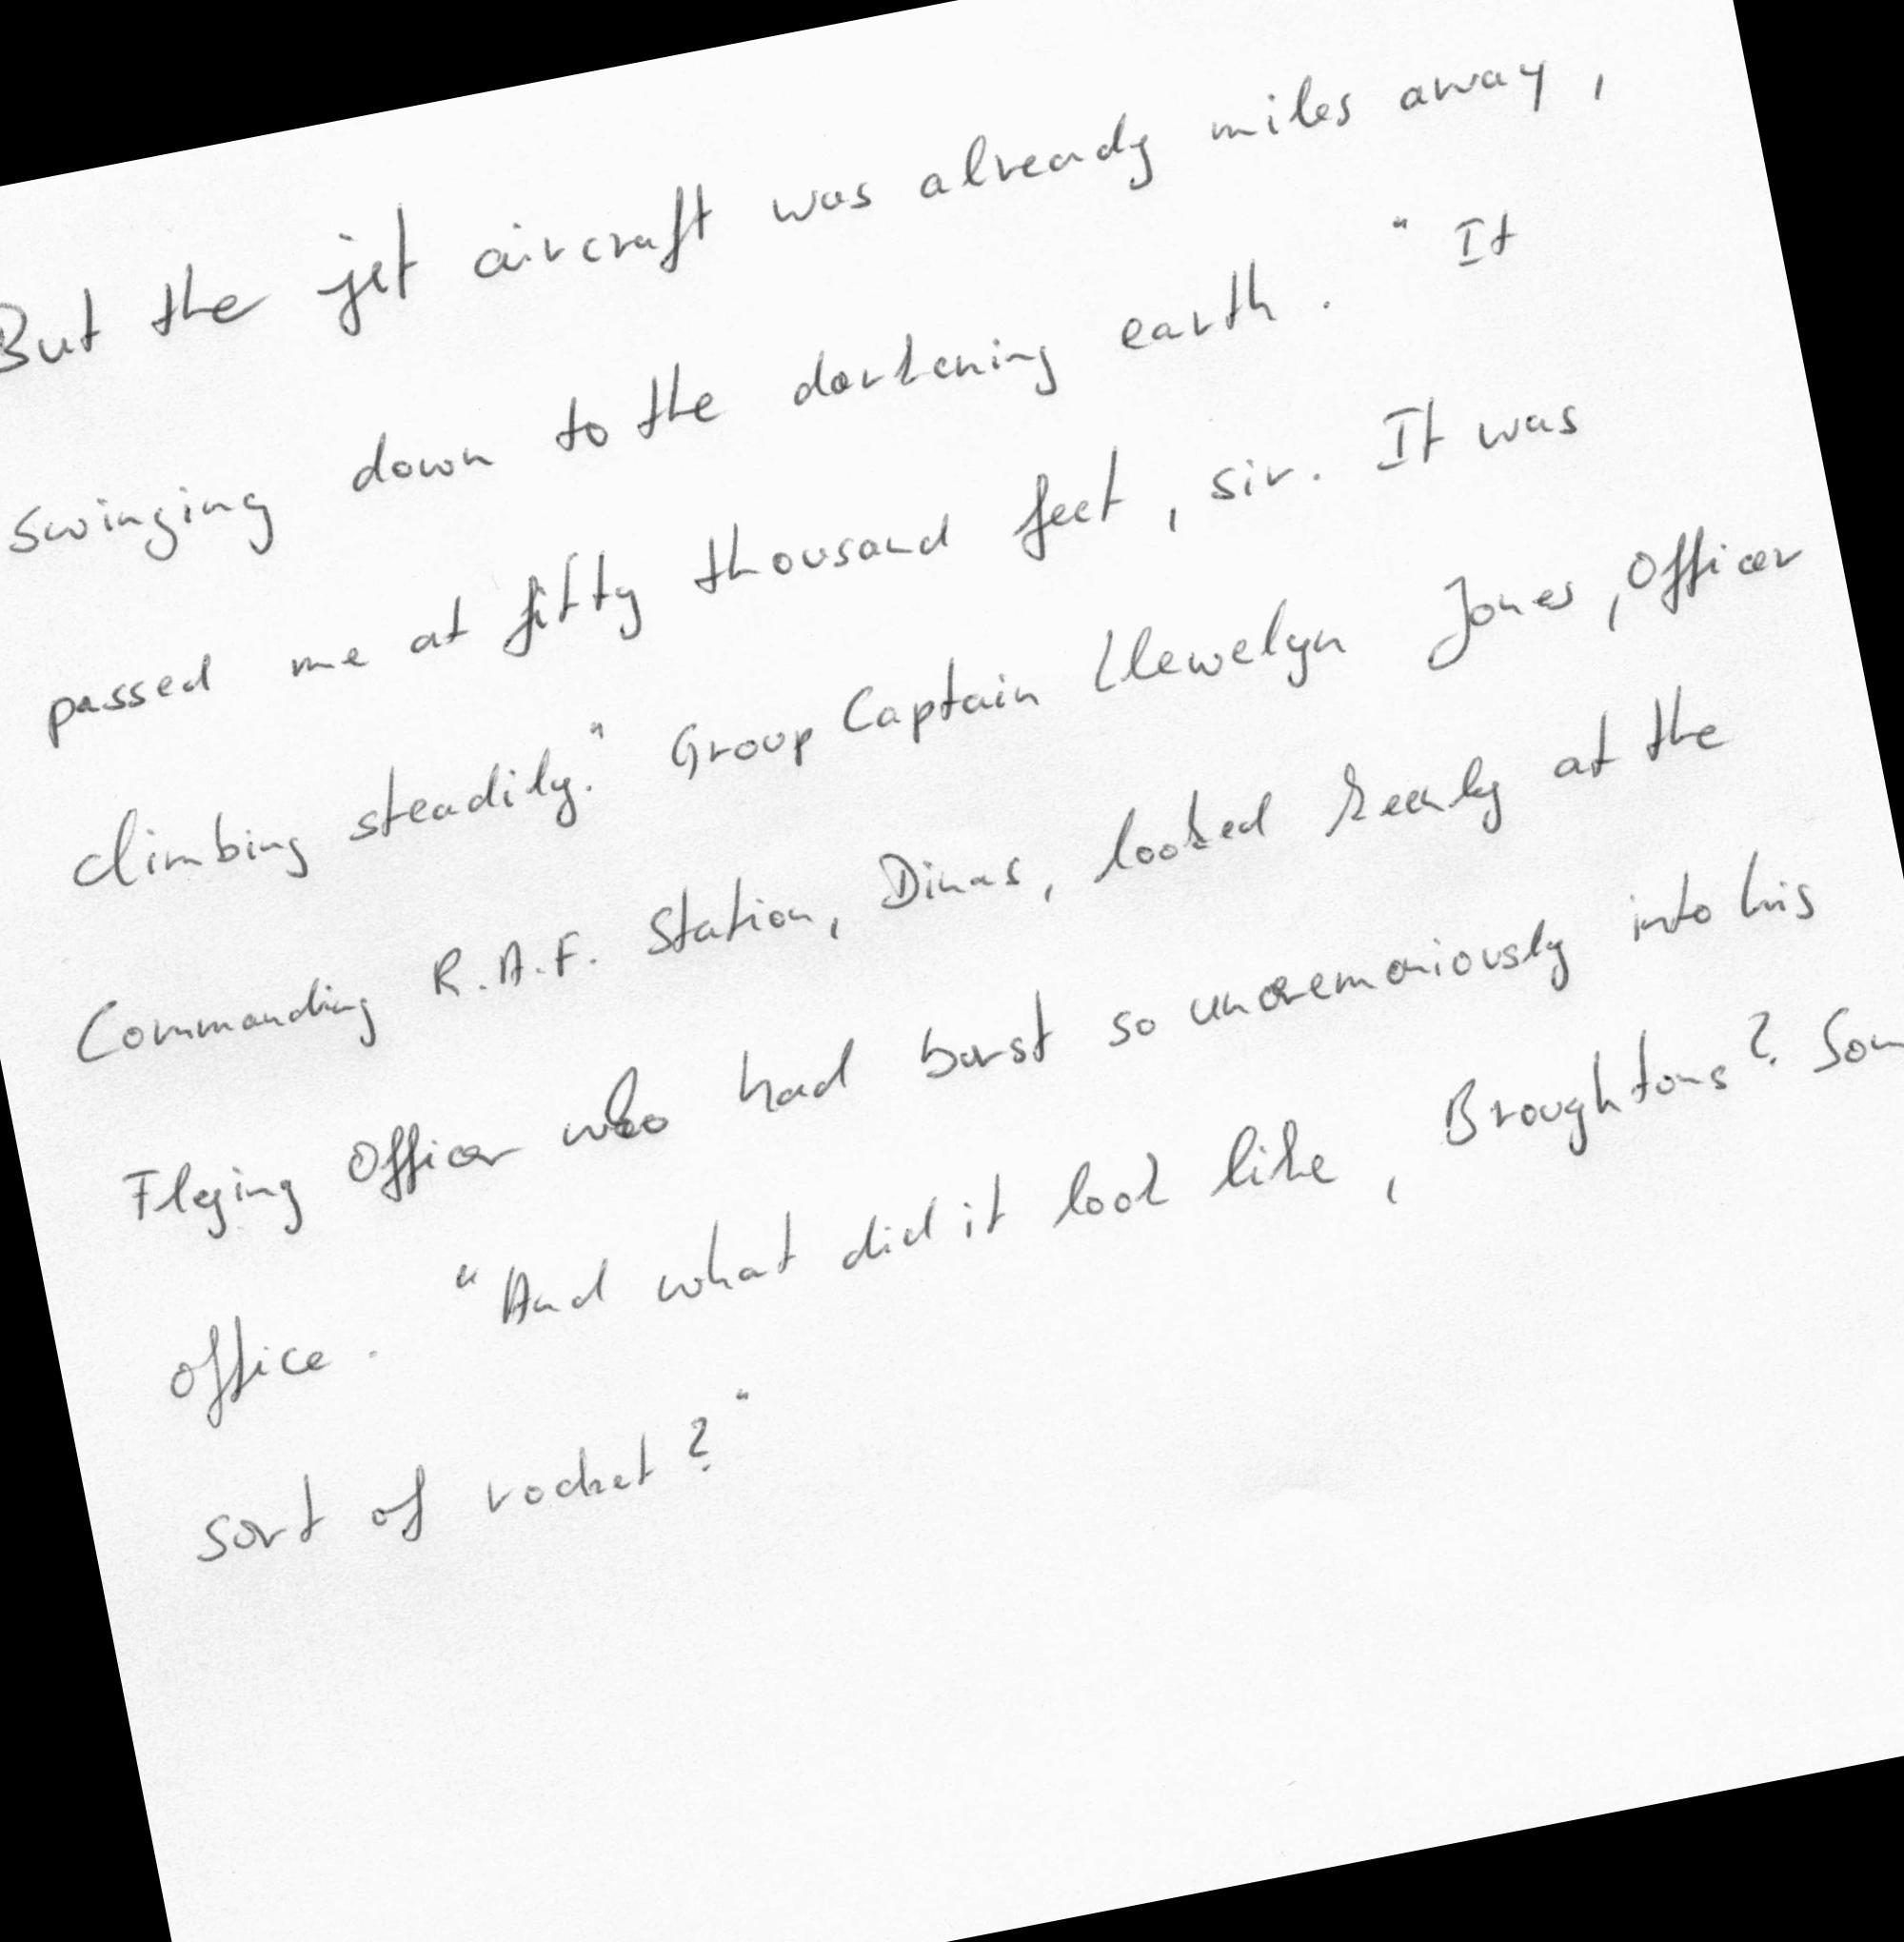 But the jet aircraft was already miles away,
swinging down to the darkening earth. "It
passed me at fifty thousand feet, sir. It was
climbing steadily." Group Captain Llewelyn Jones, Officer
Commanding R.A.F. Station, Dinas, looked keenly at the
Flying Officer who had burst so unceremoniously into his
office. "And what did it look like, Broughtons? Som
sort of rocket?"